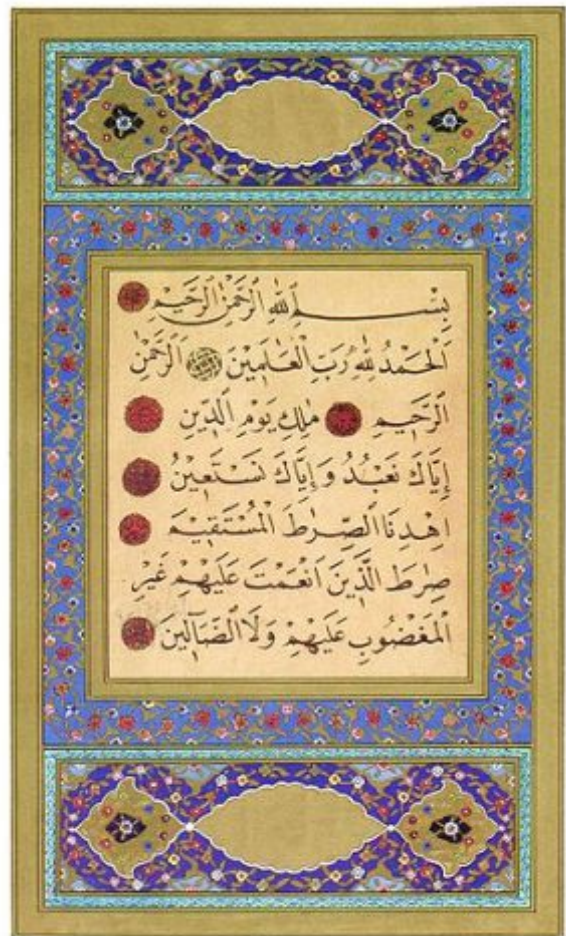 بِسْمِ اللهِ الرَّحْمٰنِ الرَّحِيْمِ
اَلْحَمْدُ لِلهِ رَبِّ الْعَالَمِيْنَ اَلرَّحْمٰنِ
الرَّحِيْمِ مٰلِكِ يَوْمِ الدِّيْنِ
اِيَّاكَ نَعْبُدُ وَ اِيَّاكَ نَسْتَعِيْنُ
اِهْدِنَا الصِّرٰطَ الْمُسْتَقِيْمَ
صِرٰطَ الَّذِيْنَ اَنْعَمْتَ عَلَيْهِمْ غَيْرِ
الْمَغْضُوبِ عَلَيْهِمْ وَلَا الضَّآلِّيْنَ